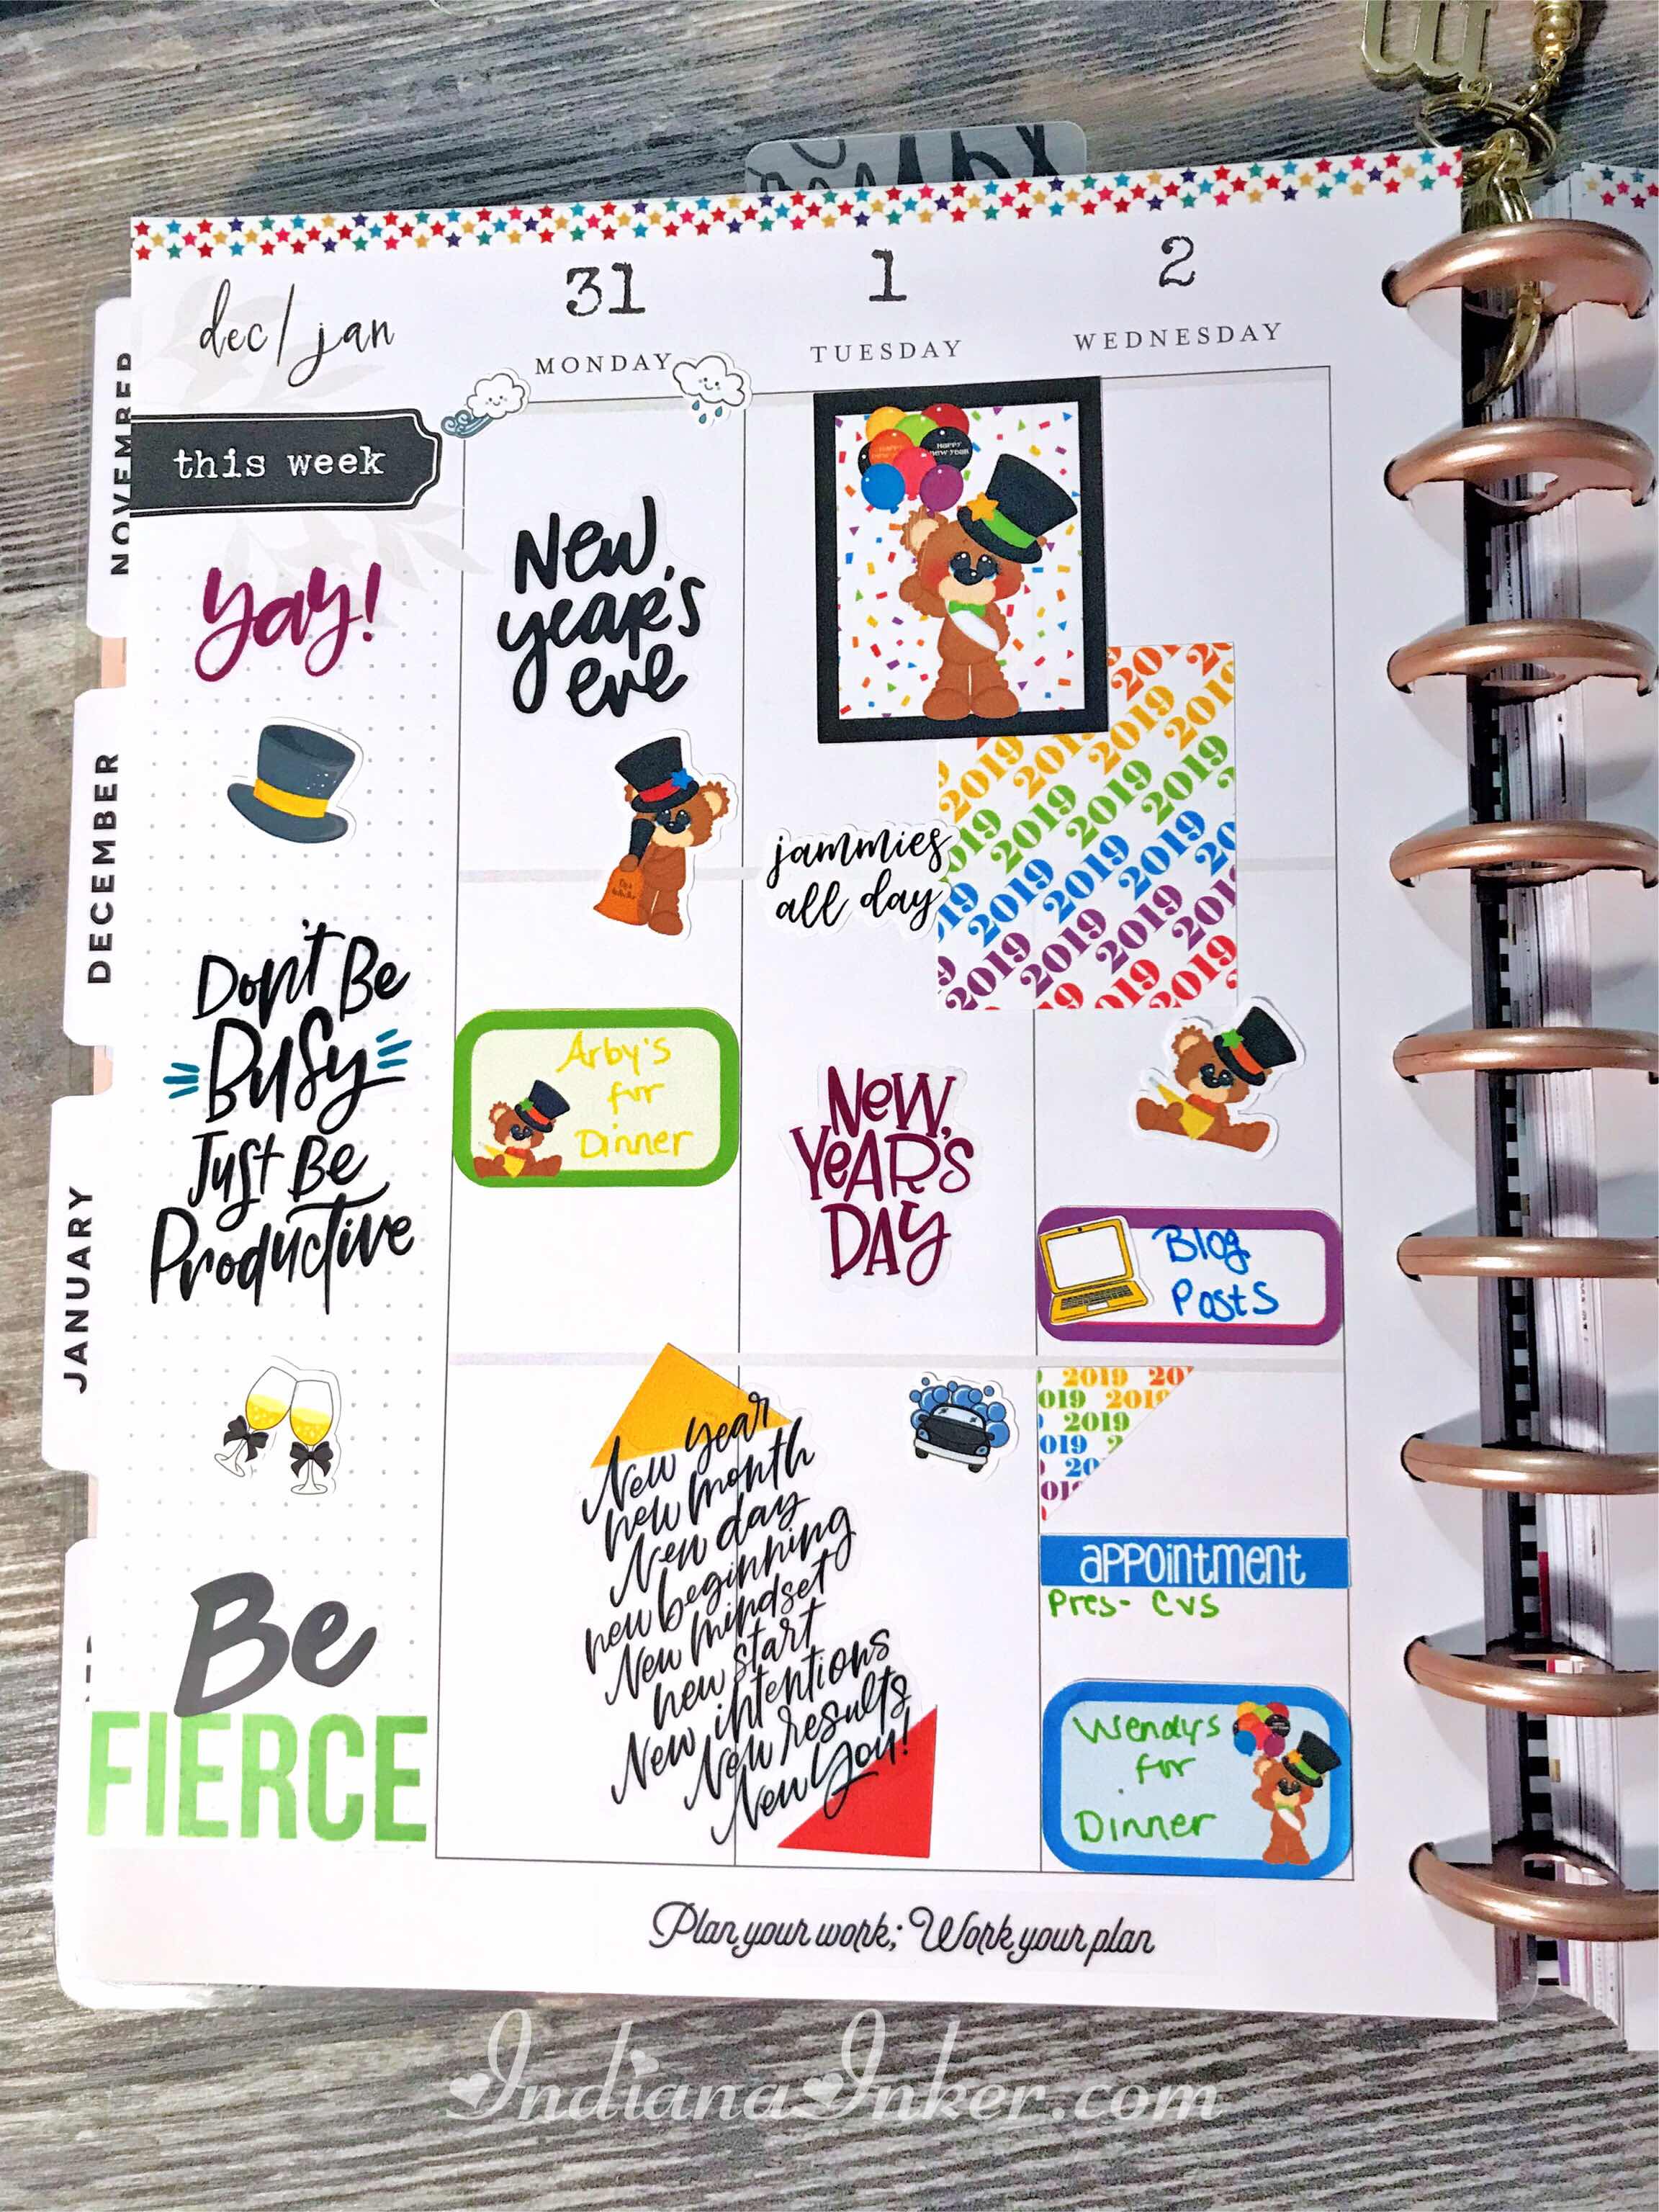 dec/jan
31
MONDAY
1
TUESDAY
2
WEDNESDAY
NOVEMBER
DECEMBER
JANUARY
this week
yay!
Don't Be
Busy
Just Be
Productive
Be
FIERCE
New
year's
eve
Arby's
for
Dinner
HAPPY
NEW YEAR
jammies
all day
2019 2019 2019
2019 2019 2019
2019 2019 2019
2019 2019 2019
NEW
YEAR'S
DAY
New year
new month
New day
new beginning
New mindset
new start
New intentions
New results
New You!
Blog
Posts
2019
2019
2019
appointment
Pres- CVS
Wendys
for
Dinner
Plan your work; Work your plan
IndianaInker.com